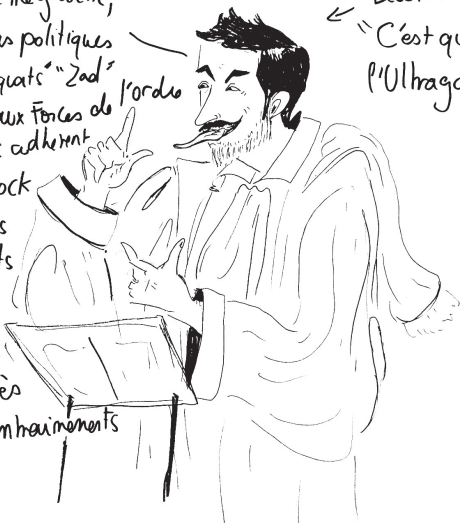 politiques
"Zad"
aux Forces de l'ordre
adhèrent
ock
s
ts
ès
ntrainements
"C'est qu
l'Ultrag